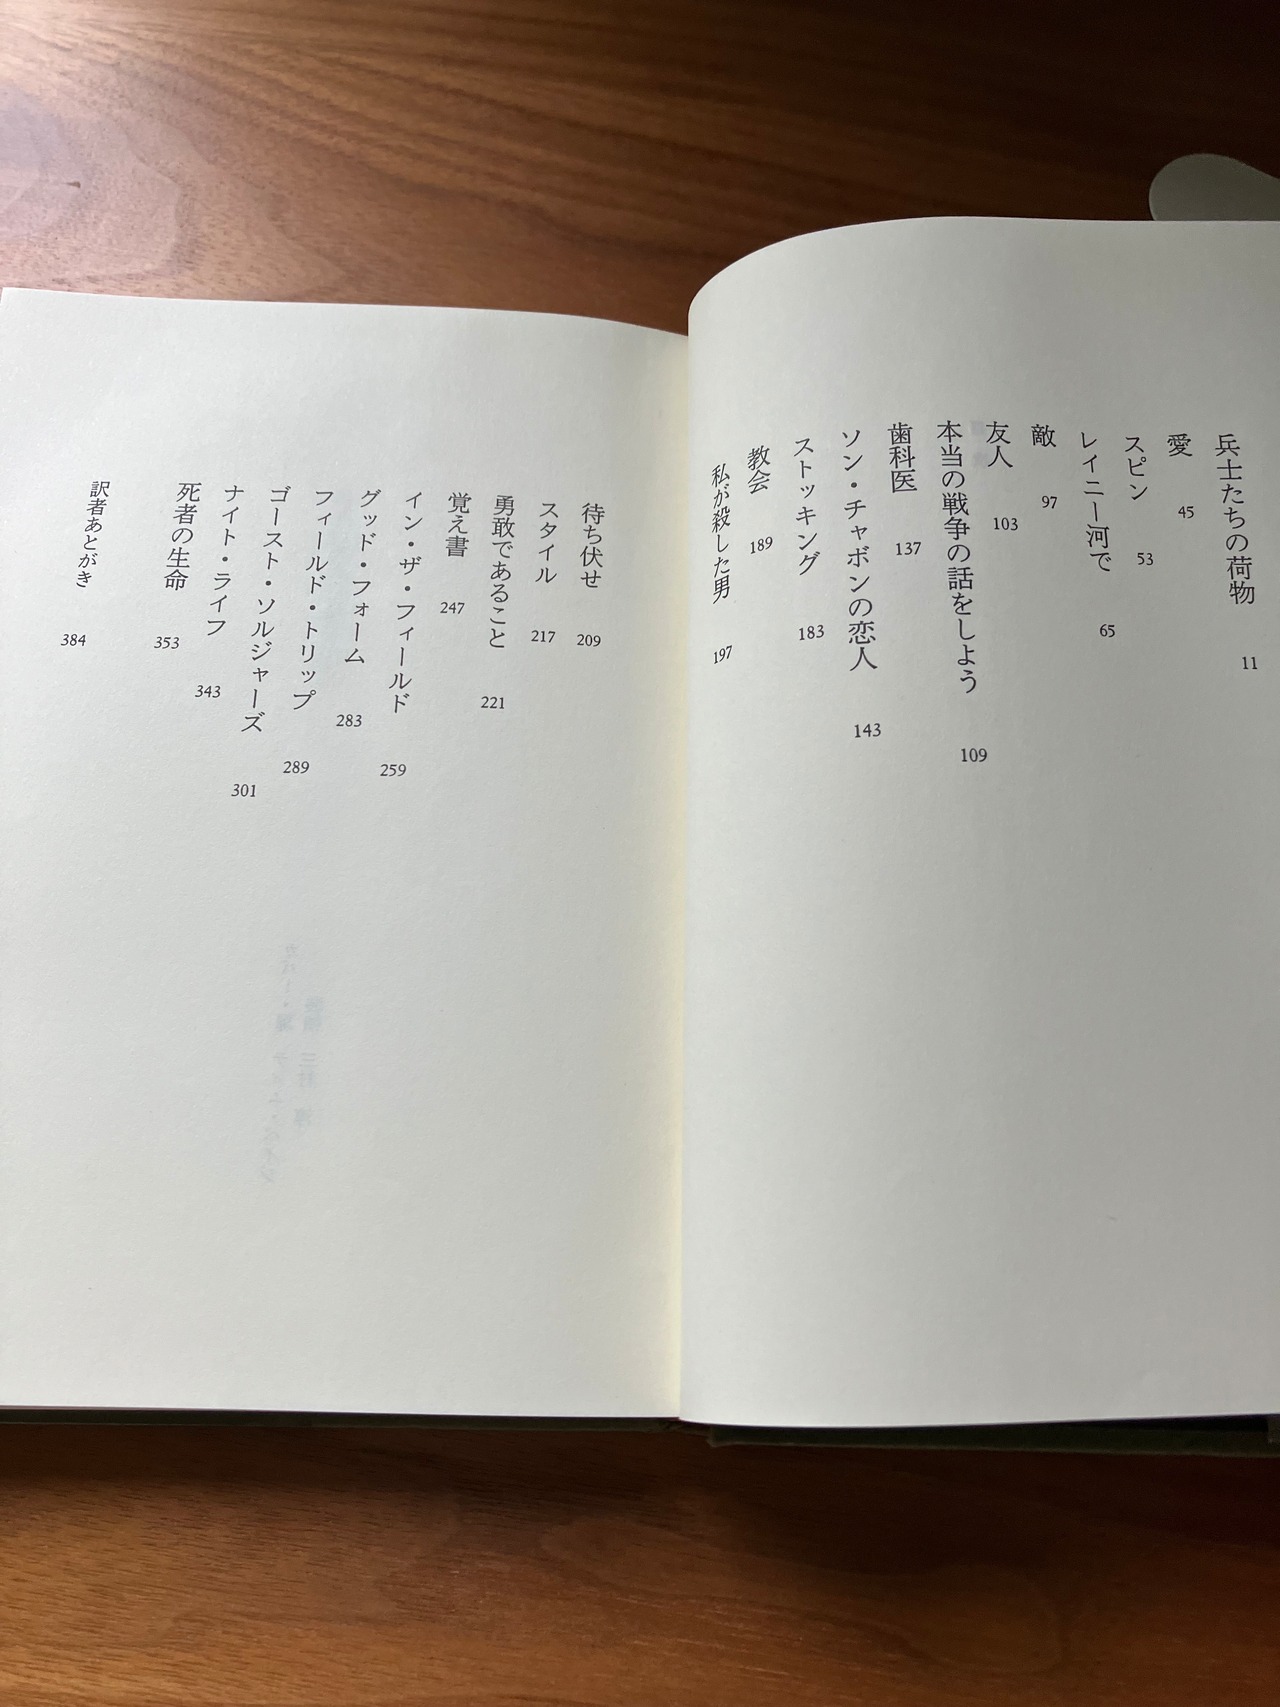 兵士たちの荷物 11
愛 45
スピン 53
レイニー河で 65
敵 97
友人 103
本当の戦争の話をしよう 109
歯科医 137
ソン・チャボンの恋人 143
ストッキング 183
教会 189
私が殺した男 197
待ち伏せ 209
スタイル 217
勇敢であること 221
覚え書 247
イン・ザ・フィールド 259
グッド・フォーム 283
フィールド・トリップ 289
ゴースト・ソルジャーズ 301
ナイト・ライフ 343
死者の生命 353
訳者あとがき 384